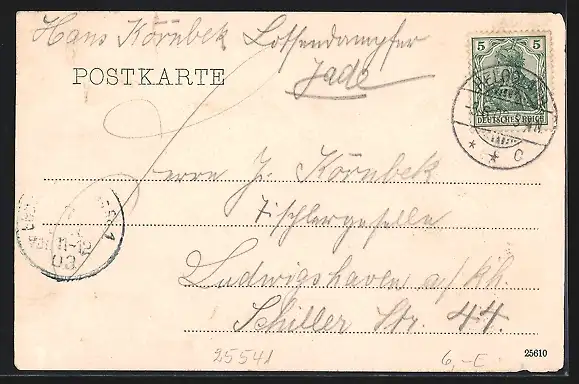 Hans Körnbek Lotsendampfer
Jade
POSTKARTE
5 5
DEUTSCHES REICH
* * c
Herrn J. Körnbek
Tischlergeselle
11-12
03
Ludwigshaven a/Rh.
Schiller Str. 44.
25541
6,-E
25610